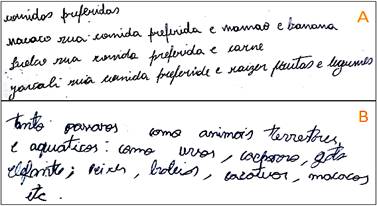 comidas preferidas
A
macaco sua comida preferida e mamao e banana
sua comida preferida e carne
sua comida preferide e raizer frutas e legumes
B
tanto passaros como animais terrestres
e aquaticos: como ursos, cachorro, gato
elefante; peixes, baleias, macacos
etc.